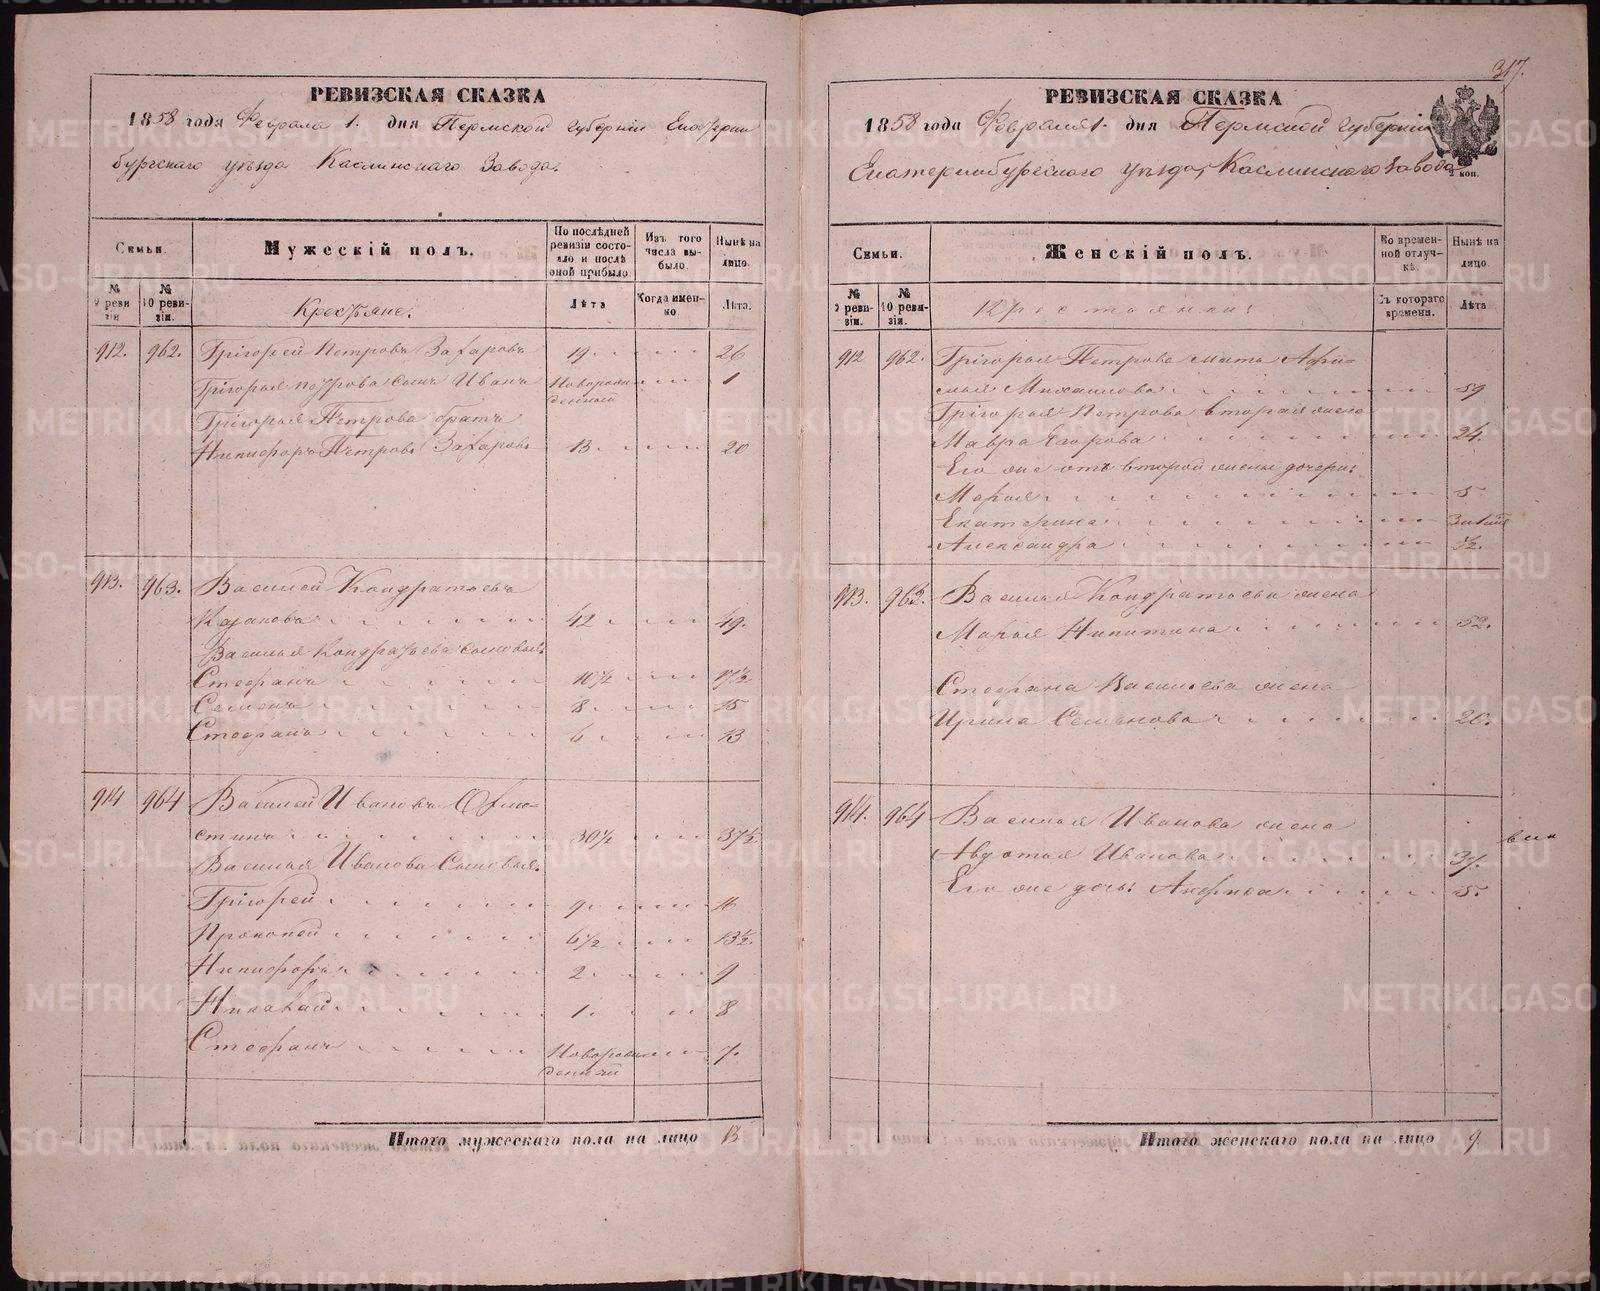 РЕВИЗСКАЯ СКАЗКА
1858 года Февраля 1. дня Пермской губерніи Екатерин
бургскаго уѣзда Каслинскаго Завода.
Семьи.
Мужескій полъ.
По послѣдней ревизіи состояло и послѣ оной прибыло
Изъ того числа выбыло.
Нынѣ на лицо.
№ 9 ревизіи
№ 10 ревизіи.
Крестьяне:
Лѣта
Когда именно
Лѣта.
912. 962. Григорей Петровъ Захаровъ 19 26
Григорья Петрова сынъ Иванъ Новорож 1
денный
Григорья Петрова братъ
Никифоръ Петровъ Захаровъ 13 20
913. 963. Василей Кондратьевъ
Казаковъ 42 49.
Василья Кондратьева сыновья:
Стефанъ 10½ 17½
Семенъ 8 15
Стефанъ 6 13
914 964 Василей Ивановъ
стинъ 30½ 37½
Василья Иванова Сыновья:
Григорей 9 16
Прокопей 6½ 13½
Никифоръ 2 9
Николай 1 8
Стефанъ Новорож 7.
денный
Итого мужескаго пола на лицо 13
317.
РЕВИЗСКАЯ СКАЗКА
1858 года Февраля 1. дня Пермской губерніи
Екатеринбургскаго уѣзда, Каслинскаго Завода
2 коп.
Семьи.
Женскій полъ.
Во временной отлучкѣ.
Нынѣ на лицо.
№ 9 ревизіи.
№ 10 ревизіи.
Крестьянки:
Съ котораго времени.
Лѣта
912 962. Григорья Петрова мать Афи-
мья Михаилова 59
Григорья Петрова вторая жена
Мавра Егорова 24.
Его же отъ второй жены дочери:
Марья 5
Екатерина
Александра ½.
913. 963. Василья Кондратьева жена
Марья Никитина 52.
Стефана Васильева жена
Ирина Семенова 20.
914. 964 Василья Иванова жена
Авдотья Иванова 37.
Его же дочь: Анфиса 5.
Итого женскаго пола на лицо 9
METRIKI.GASO-URAL.RU